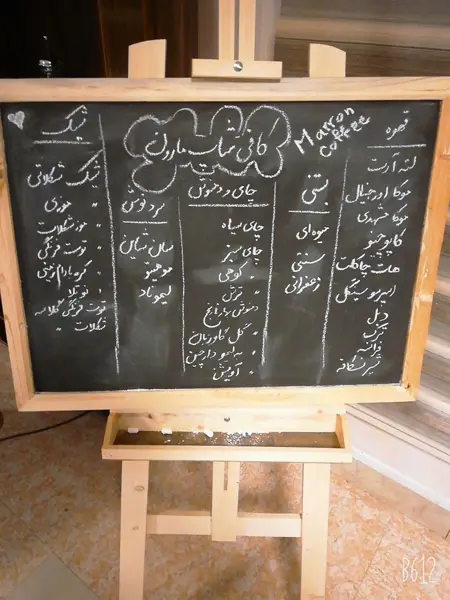 کافی شاپ مارون
Marron
coffee
قهوه
لته آرت
موکا اورجینال
موکا مشهدی
کاپوچینو
هات چاکلت
اسپرسو سینگل
دبل
ترک
فرانسه
شیر نسکافه
بستنی
میوه ای
سنتی
زعفرانی
چای و دمنوش
چای سیاه
چای سبز
کوهی
ترش
دمنوش بهار نارنج
" گل گاوزبان
" به لیمو دارچین
" آویشن
سردنوش
سان شاین
موهیتو
لیموناد
شیک
شیک شکلاتی
" موزی
" موز شکلات
" توت فرنگی
" کره بادام زمینی
" نوتلا
توت فرنگی گلاسه
شکلات "
B612